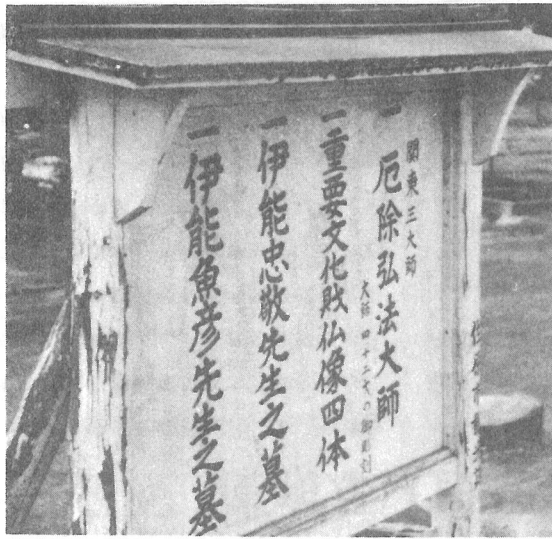 関東三大師
一 厄除弘法大師
大師 四十二才の御彫刻
一重要文化財仏像四体
一伊能忠敬先生之墓
一伊能魚彦先生之墓